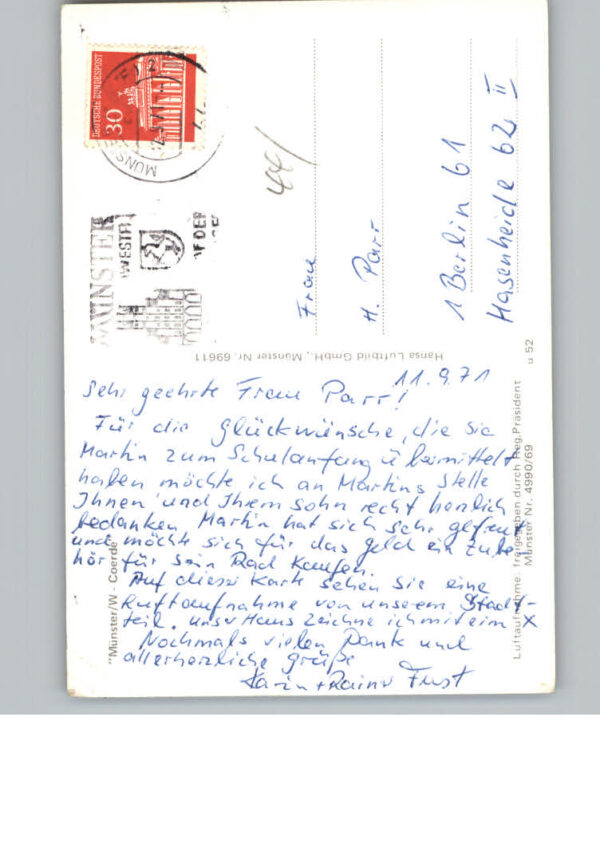 11.9.71
Sehr geehrte Frau Parr!
Für die Glückwünsche, die sie
Martin zum Schulanfang übermittelt
haben möchte ich an Martins Stelle
Ihnen und Ihrem Sohn recht herzlich
bedanken. Martin hat sich sehr gefreut
und möchte sich für das Geld ein Zube-
hör für sein Rad kaufen.
Auf dieser Karte sehen Sie eine
Luftaufnahme von unserem Stadt-
teil. Unser Haus zeichne ich mit eim X
Nochmals vielen Dank und
allerherzliche Grüße
Karin + Rainer
Frau
H. Parr
1 Berlin 61
Hasenheide 62 II
44/
DEUTSCHE BUNDESPOST
30
MÜNSTER
WESTF
F DER
Hansa Luftbild GmbH., Münster Nr. 69611
"Münster/W - Coerde"
Luftaufnahme: freigegeben durch Reg. Präsident
Münster Nr. 4990/69
u 52